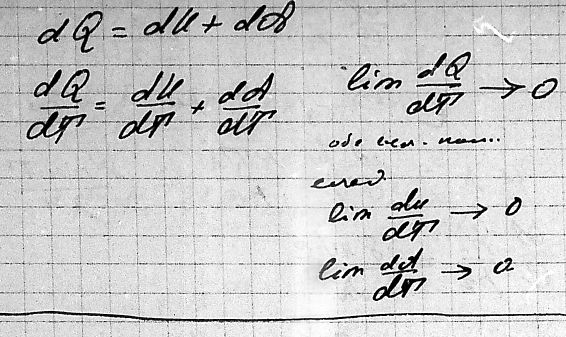 dQ = dU + dA
dQ/dT = dU/dT + dA/dT
lim dQ/dT → 0
lim dU/dT → 0
lim dA/dT → 0